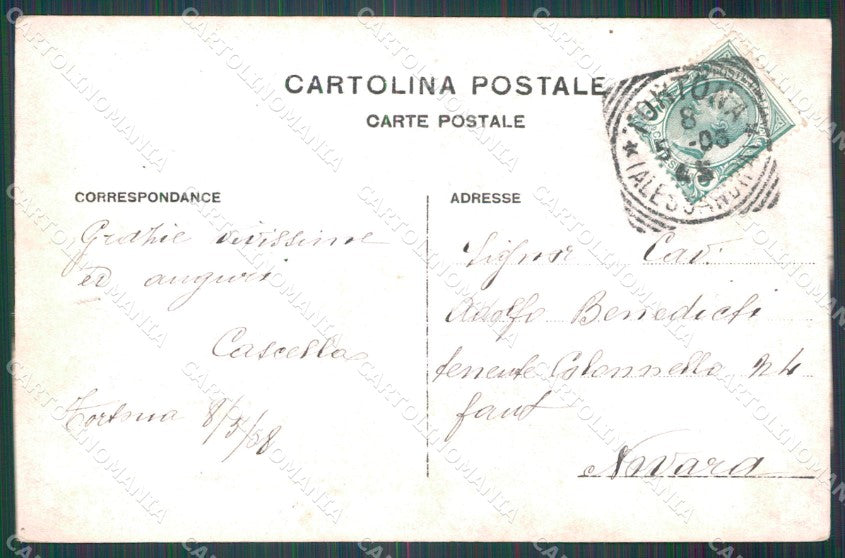 CARTOLINA POSTALE
CARTE POSTALE
TORTONA
8 - 5 - 08
(ALESSANDRIA)
CORRESPONDANCE
ADRESSE
Grazie vivissime
ed auguri
Cascella
Tortona 8/5/08
Signor Cav.
Adolfo Benedicti
tenente Colonnello 24
fant
Novara
CARTOLINOMANIA